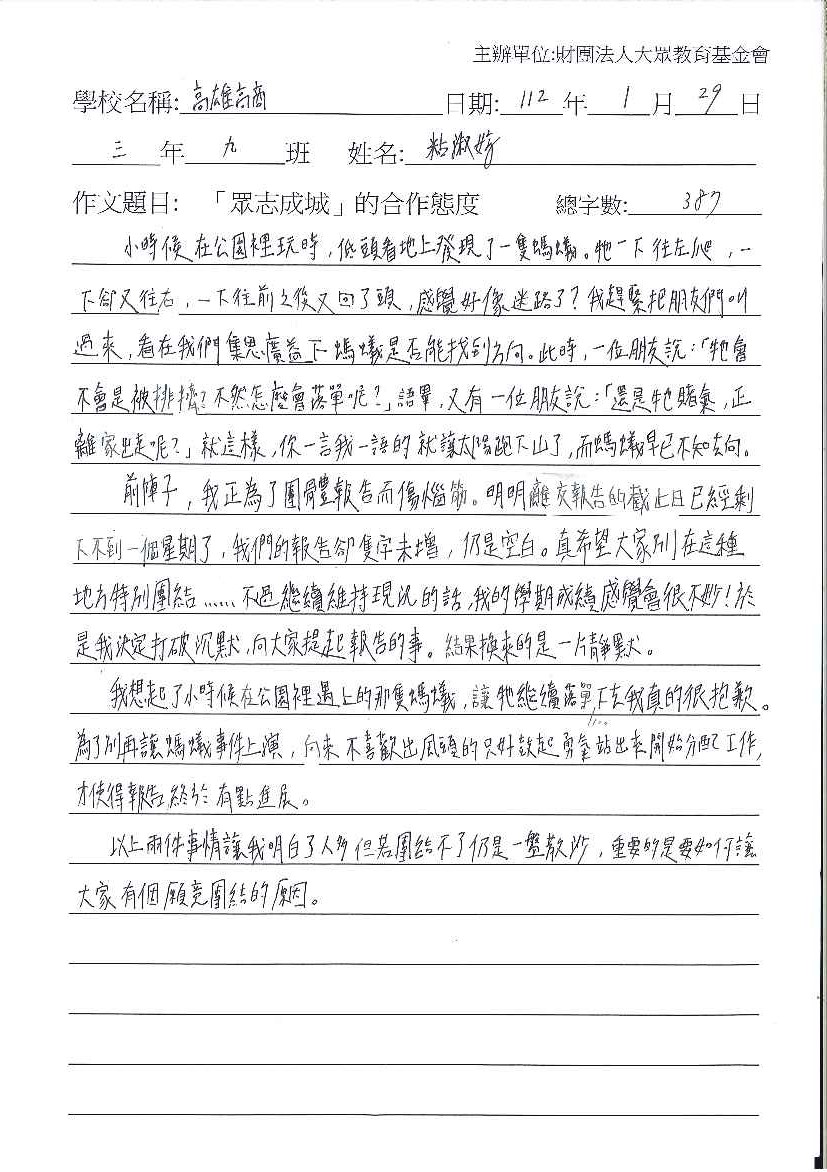 主辦單位:財團法人大眾教育基金會
學校名稱: 高雄高商 日期: 112 年 1 月 29 日
三 年 九 班 姓名: 粘淑婷
作文題目: 「眾志成城」的合作態度 總字數: 387
小時候在公園裡玩時，低頭看地上發現了一隻螞蟻。牠一下往左爬，一
下卻又往右，一下往前之後又回了頭，感覺好像迷路了？我趕緊把朋友們叫
過來，看在我們集思廣益下螞蟻是否能找到方向。此時，一位朋友說：「牠會
不會是被排擠？不然怎麼會落單呢？」語畢，又有一位朋友說：「還是牠賭氣，正
離家出走呢？」就這樣，你一言我一語的就讓太陽跑下山了，而螞蟻早已不知去向。
前陣子，我正為了團體報告而傷腦筋。明明離交報告的截止日已經剩
下不到一個星期了，我們的報告卻隻字未增，仍是空白。真希望大家別在這種
地方特別團結……不過繼續維持現況的話，我的學期成績感覺會很不妙！於
是我決定打破沉默，向大家提起報告的事。結果換來的是一片靜默。
我想起了小時候在公園裡遇上的那隻螞蟻，讓牠繼續落單下去我真的很抱歉。
為了別再讓螞蟻事件上演，向來不喜歡出風頭的只好鼓起勇氣站出來開始分配工作，
才使得報告終於有點進展。
以上兩件事情讓我明白了人多但若團結不了仍是一盤散沙，重要的是要如何讓
大家有個願意團結的原因。